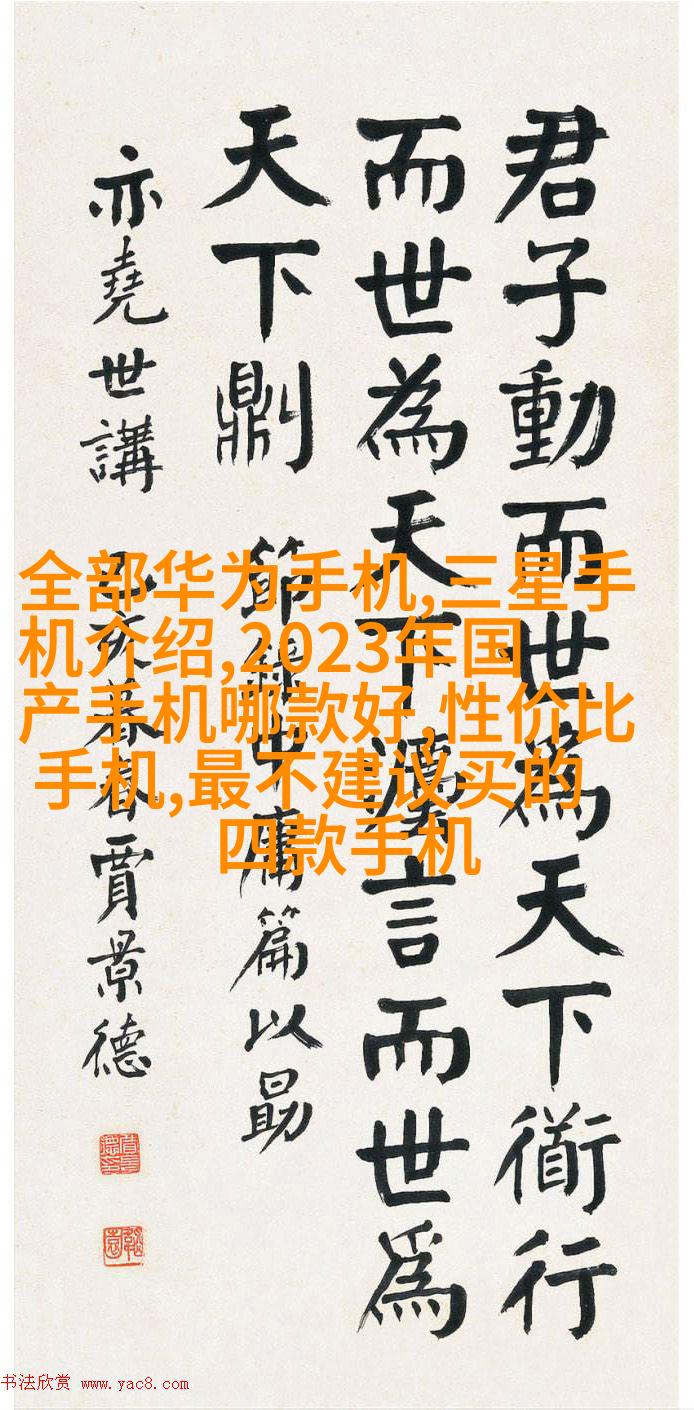 君子動而世為天下衜行
而世為天下灋言而世為
天下則 節錄中庸篇以勗
亦堯世講 乙亥暮春賈景德
全部华为手机,三星手
机介绍,2023年国
产手机哪款好,性价比
手机,最不建议买的
四款手机
书法欣赏 www.yac8.com